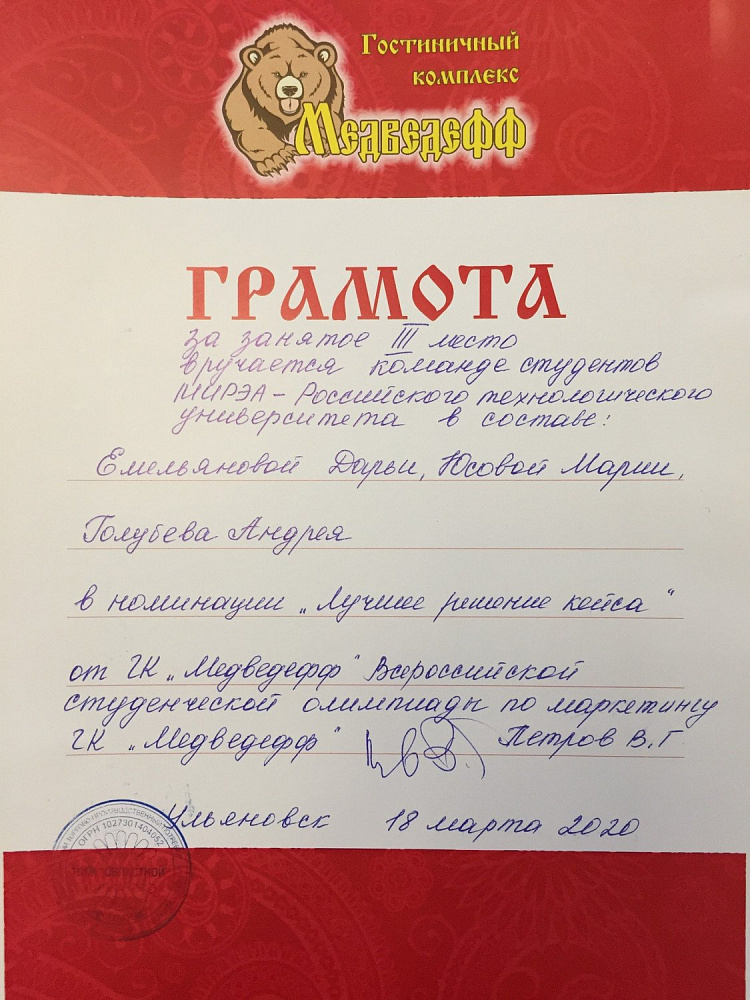 Гостиничный
комплекс
Медведефф
ГРАМОТА
за занятое III место
вручается команде студентов
МИРЭА – Российского технологического
университета в составе:
Емельяновой Дарьи, Юсовой Марии,
Голубева Андрея
в номинации „Лучшее решение кейса“
от ГК „Медведефф“ Всероссийской
студенческой олимпиады по маркетингу
ГК „Медведефф“ Петров В.Г
Ульяновск 18 марта 2020
ОГРН 1027301404052